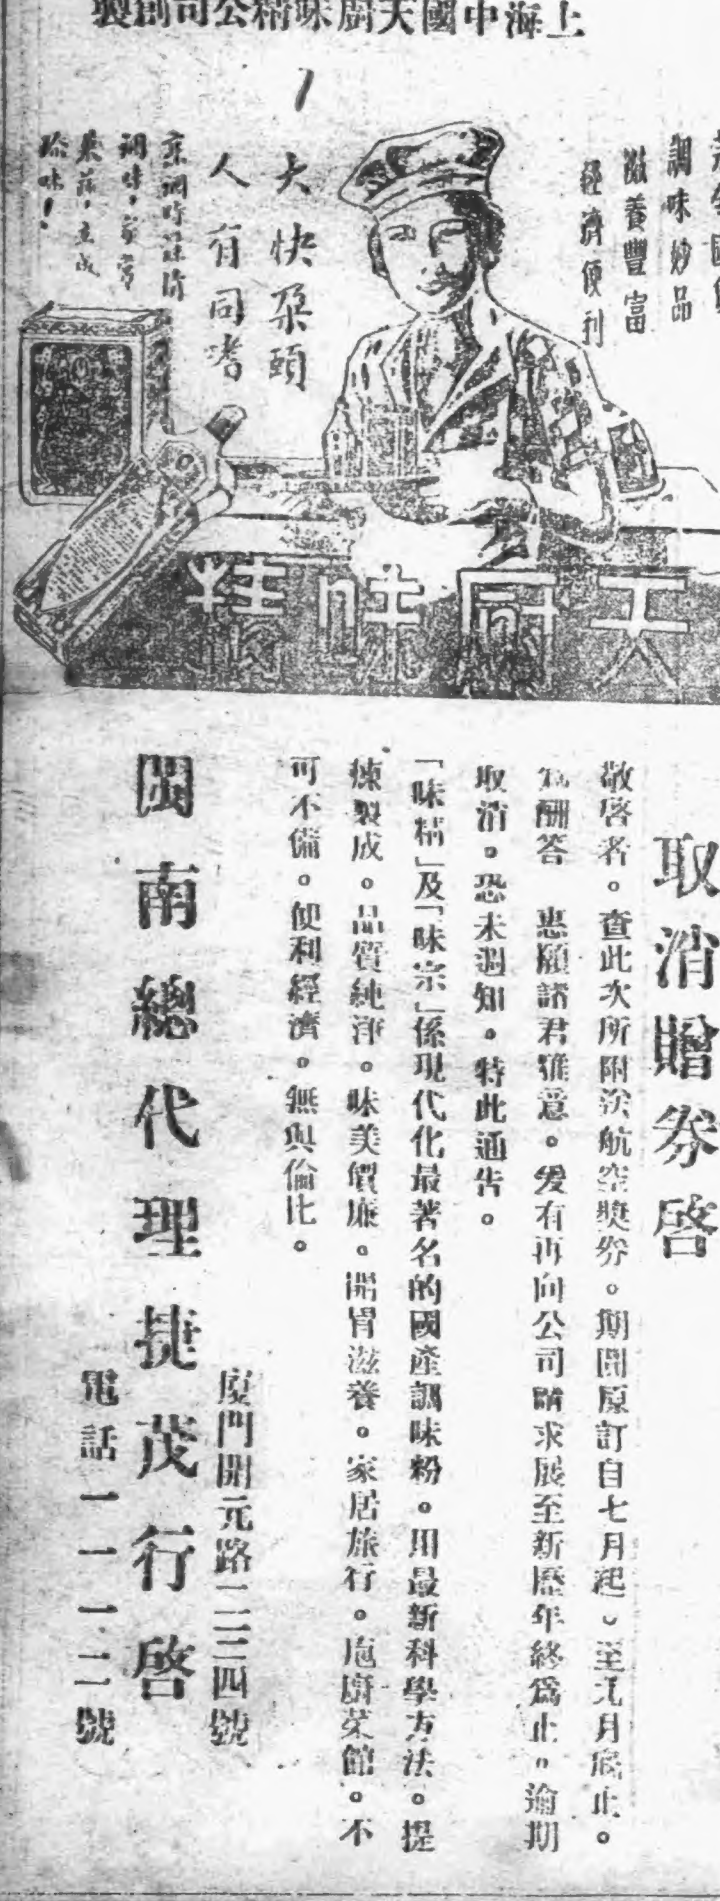 上海中國天廚味精公司創製
調味妙品
滋養豐富
經濟便利
大快朶頤
人有同嗜
烹調時
調味，家常
菜蔬，立成
珍味！
天廚味精
取消贈券啓
敬啓者。查此次所附送航空獎券。期間原訂自七月起。至九月底止。
為酬答　惠顧諸君雅意。爰有再向公司請求展至新曆年終為止。逾期
取消。恐未週知。特此通告。
「味精」及「味宗」係現代化最著名的國產調味粉。用最新科學方法。提
煉製成。品質純淨。味美價廉。開胃滋養。家居旅行。庖廚菜館。不
可不備。便利經濟。無與倫比。
廈門開元路二二四號
閩南總代理捷茂行啓
電話一一一二號